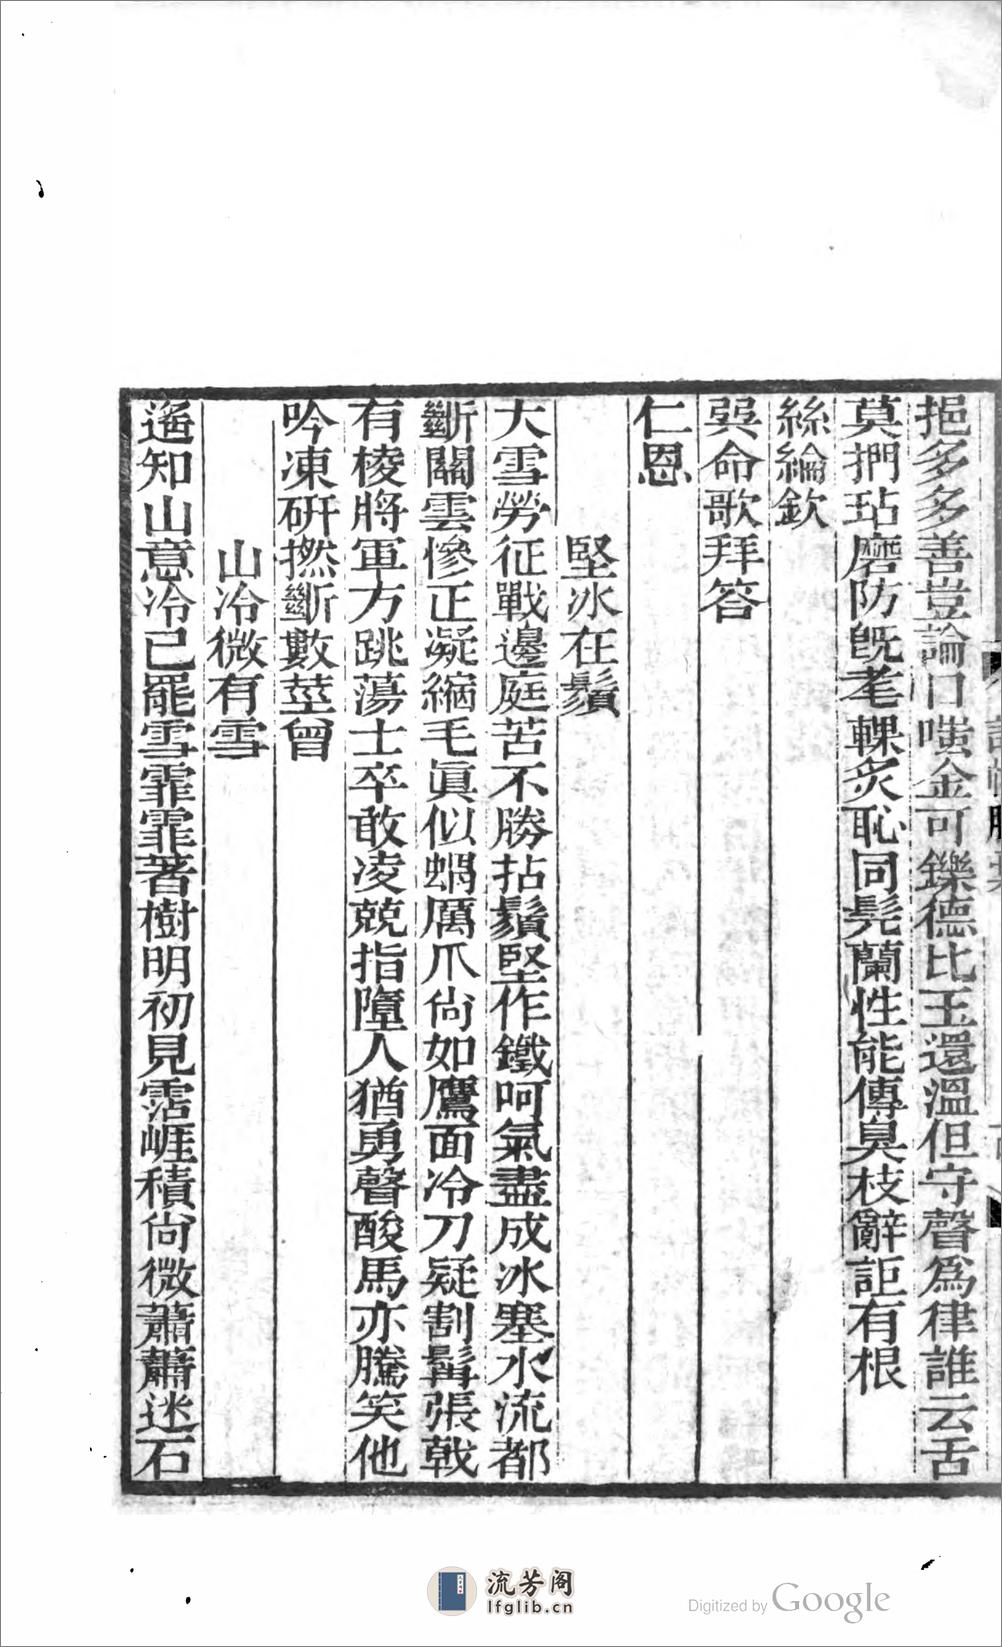 挹多多善豈論口嗤金可鑠德比玉還溫但守聲為律誰云舌
莫捫玷磨防旣耄輠炙恥同髡蘭性能傳臭枝辭詎有根
絲綸欽
巽命歌拜答
仁恩
堅冰在鬚
大雪勞征戰邊庭苦不勝拈鬚堅作鐵呵氣盡成冰塞水流都
斷關雲慘正凝縮毛眞似蝟厲爪尙如鷹面冷刀疑割髯張戟
有棱將軍方跳蕩士卒敢凌兢指墮人猶勇聲酸馬亦騰笑他
吟凍硏撚斷數莖曾
山冷微有雪
遙知山意冷已罷雪霏霏著樹明初見霑崕積尙微蕭蕭迷石
流芳阁
lfglib.cn
Digitized by Google